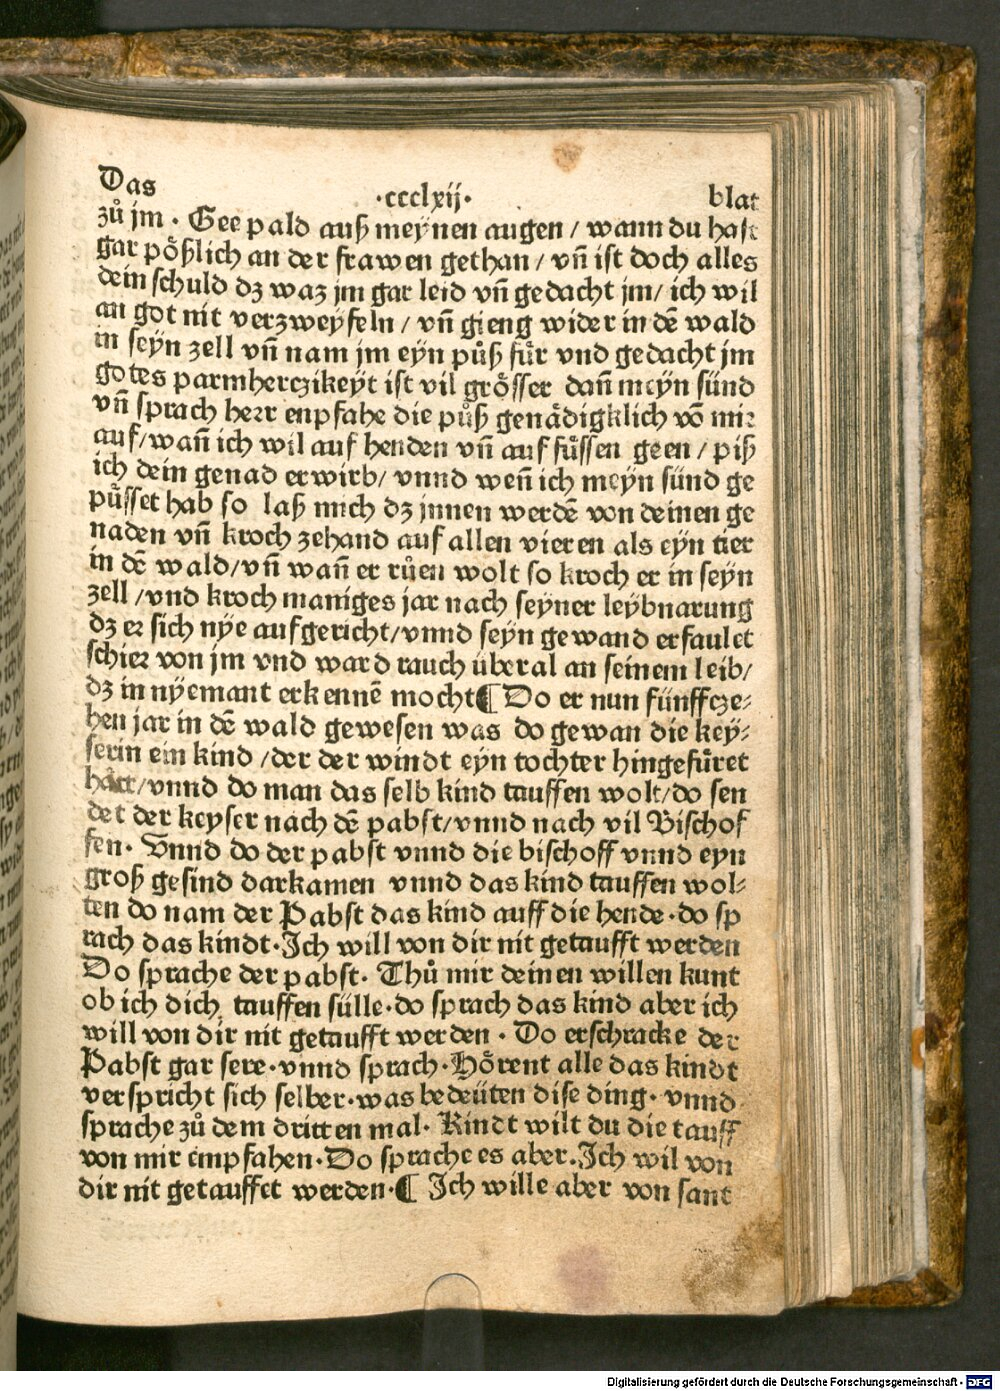 Das ·ccclxij· blat
zů jm · Gee pald auß meynen augen / wann du hast
gar pößlich an der frawen gethan / vn̄ ist doch alles
dein schuld dz waz jm gar leid vn̄ gedacht jm / ich wil
an got nit verzweyfeln / vn̄ gieng wider in dē wald
in seyn zell vn̄ nam jm eyn půß für vnd gedacht jm
gotes parmherczikeyt ist vil grösser dan̄ meyn sünd
vn̄ sprach herr enpfahe die půß genädigklich vō mir
auf / wan̄ ich wil auf henden vn̄ auf füssen geen / piß
ich dein genad erwirb / vnnd wen̄ ich meyn sünd ge
püsset hab so laß mich dz innen werdē von deinen ge
naden vn̄ kroch zehand auf allen vieren als eyn tier
in dē wald / vn̄ wan̄ er růen wolt so kroch er in seyn
zell / vnd kroch maniges jar nach seyner leybnarung
dz er sich nye aufgericht / vnnd seyn gewand erfaulet
schier von jm vnd ward rauch überal an seinem leib /
dz in nyemant erkennē mocht ¶ Do er nun fünffcze⸗
hen jar in dē wald gewesen was do gewan die key⸗
serin ein kind / der der windt eyn tochter hingefüret
hatt / vnnd do man das selb kind tauffen wolt / do sen
det der keyser nach dē pabst / vnnd nach vil Bischof
fen · Vnnd do der pabst vnnd die bischoff vnnd eyn
groß gesind darkamen vnnd das kind tauffen wol⸗
ten do nam der Pabst das kind auff die hende · do sp
rach das kindt · Ich will von dir nit getaufft werden
Do sprache der pabst · Thů mir deinen willen kunt
ob ich dich tauffen sülle · do sprach das kind aber ich
will von dir nit getaufft werden · Do erschracke der
Pabst gar sere · vnnd sprach · Hörent alle das kindt
verspricht sich selber · was bedeüten dise ding · vnnd
sprache zů dem dritten mal · Kindt wilt du die tauff
von mir empfahen · Do sprache es aber. Ich wil von
dir nit getauffet werden · ¶ Ich wille aber von sant
Digitalisierung gefördert durch die Deutsche Forschungsgemeinschaft - DFG